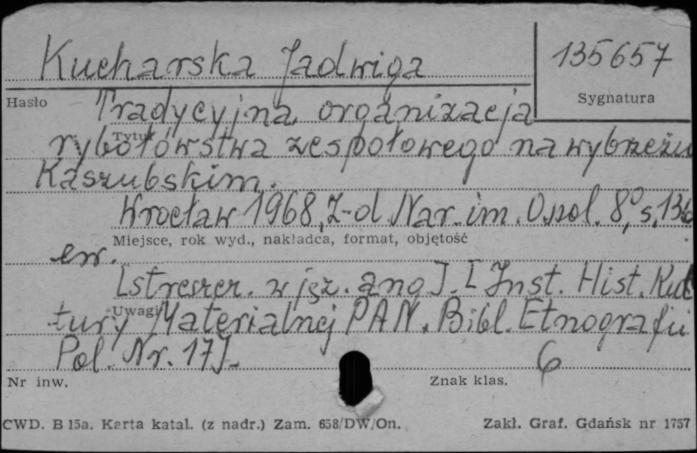 Kucharska Jadwiga
135657
Hasło
Sygnatura
Tradycyjna organizacja
Tytuł
rybołówstwa zespołowego na wybrzeżu
Kaszubskim.
Wrocław 1968, Z-d Nar. im. Ossol. 8°, s. 136
Miejsce, rok wyd., nakładca, format, objętość
err.
[streszcz. w jęz. ang]. [Inst. Hist. Kul
Uwagi
tury Materialnej PAN. Bibl. Etnografii
Pol. Nr. 17].
6
Nr inw.
Znak klas.
CWD. B 15a. Karta katal. (z nadr.) Zam. 658/DW/On.
Zakł. Graf. Gdańsk nr 1757